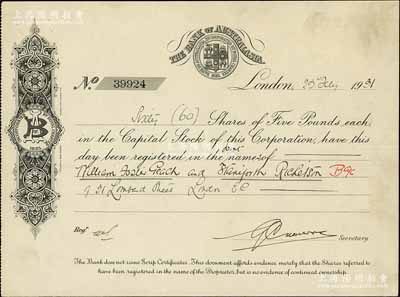 THE BANK OF AUSTRALASIA.
No 39924 London, 25 July 1931
Sixty (60) Shares of Five Pounds each,
in the Capital Stock of this Corporation, have this
day been registered in the name of
William and Ricketson
of 21 Lombard Street London EC
Regd
Secretary
The Bank does not issue Scrip Certificates. This document affords evidence merely that the Shares referred to
have been registered in the name of the Proprietor, but is no evidence of continued ownership.